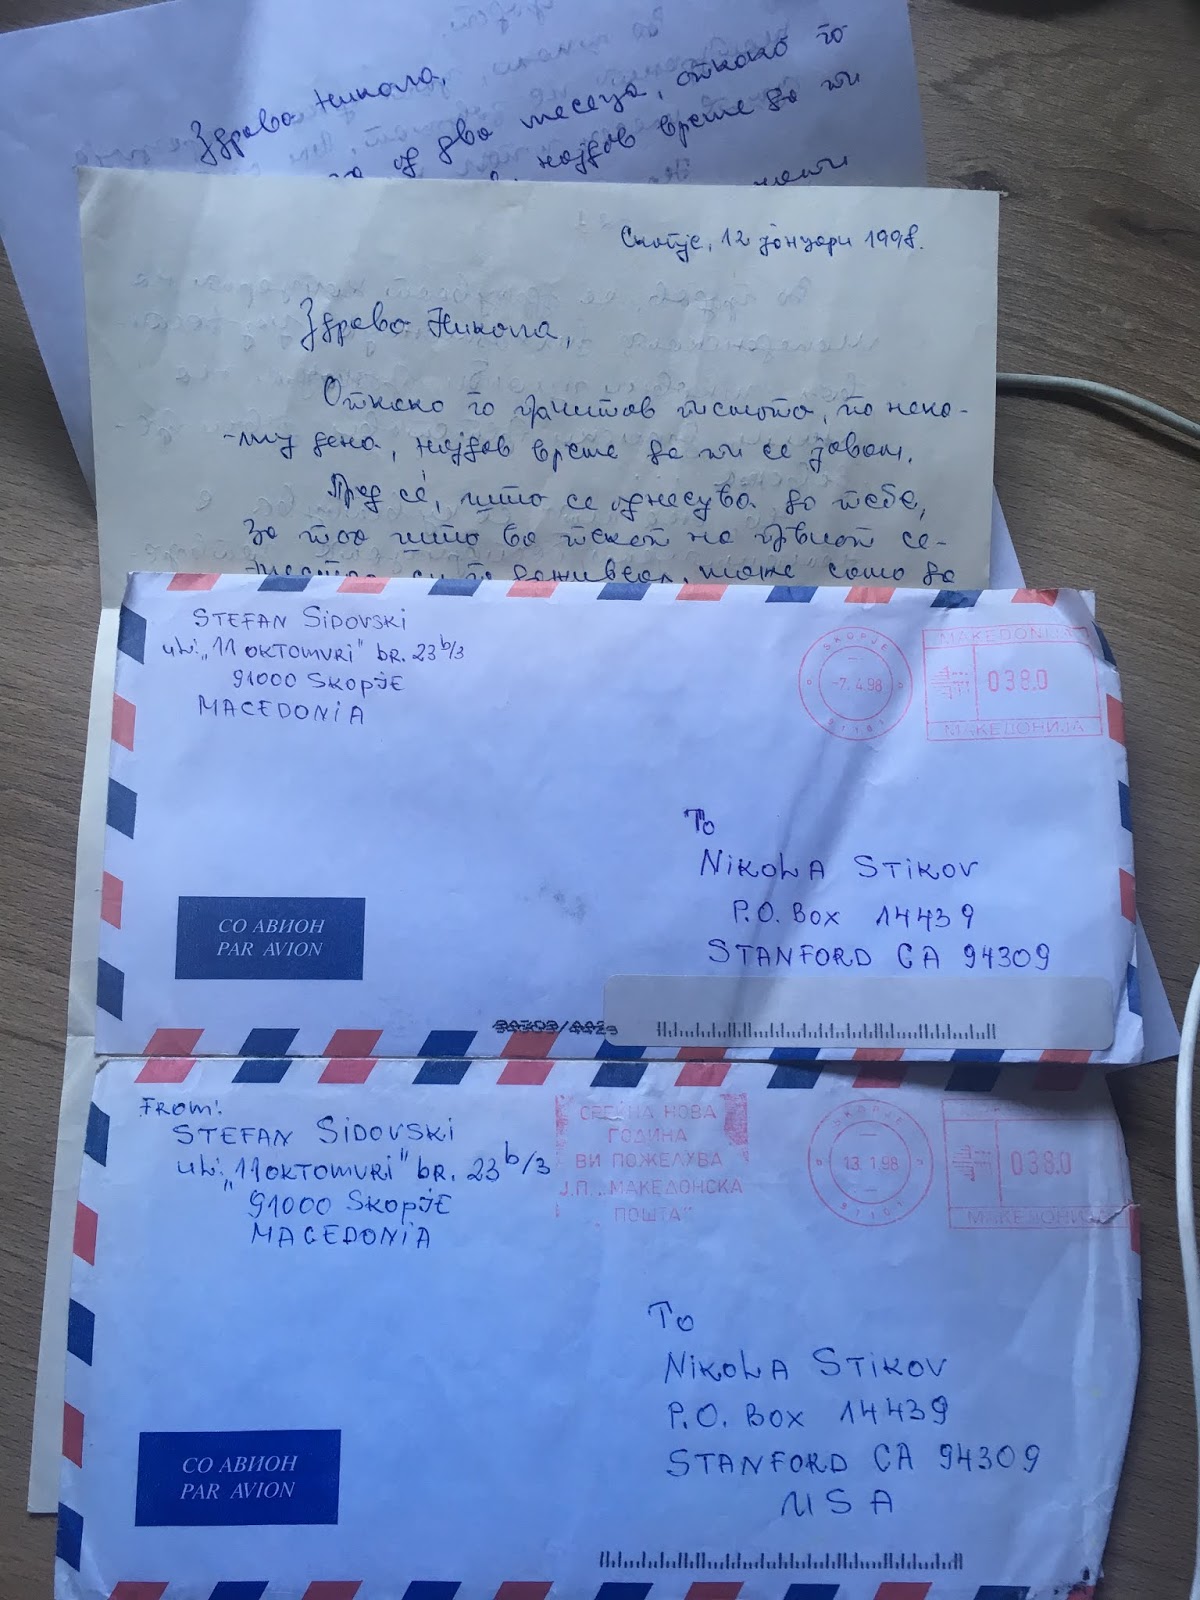 Здраво Никола,
од два месеца, откако го
најдов време да ти
Скопје, 12 јануари 1998.
Здраво Никола,
Откако го прочитав писмото, по неко-
-лку дена, најдов време да ти се јавам.
Пред сè, што се однесува до тебе,
За тоа што во текот на првиот се-
си го доживеал, може само да
STEFAN SIDOVSKI
ul: „11 OKTOMVRI" br. 23 b/3
91000 SKOPJE
MACEDONIA
SKOPJE
-7.4.98
91101
MAKEDONIJA
038.0
МАКЕДОНИЈА
To
NIKOLA STIKOV
P.O. BOX 14439
STANFORD CA 94309
СО АВИОН
PAR AVION
FROM:
STEFAN SIDOVSKI
ul: „11 OKTOMVRI" br. 23 b/3
91000 SKOPJE
MACEDONIA
СРЕЌНА НОВА
ГОДИНА
ВИ ПОЖЕЛУВА
Ј.П. „МАКЕДОНСКА
ПОШТА"
SKOPJE
13.1.98
91101
038.0
МАКЕДОНИЈА
To
NIKOLA STIKOV
P.O. BOX 14439
STANFORD CA 94309
USA
СО АВИОН
PAR AVION